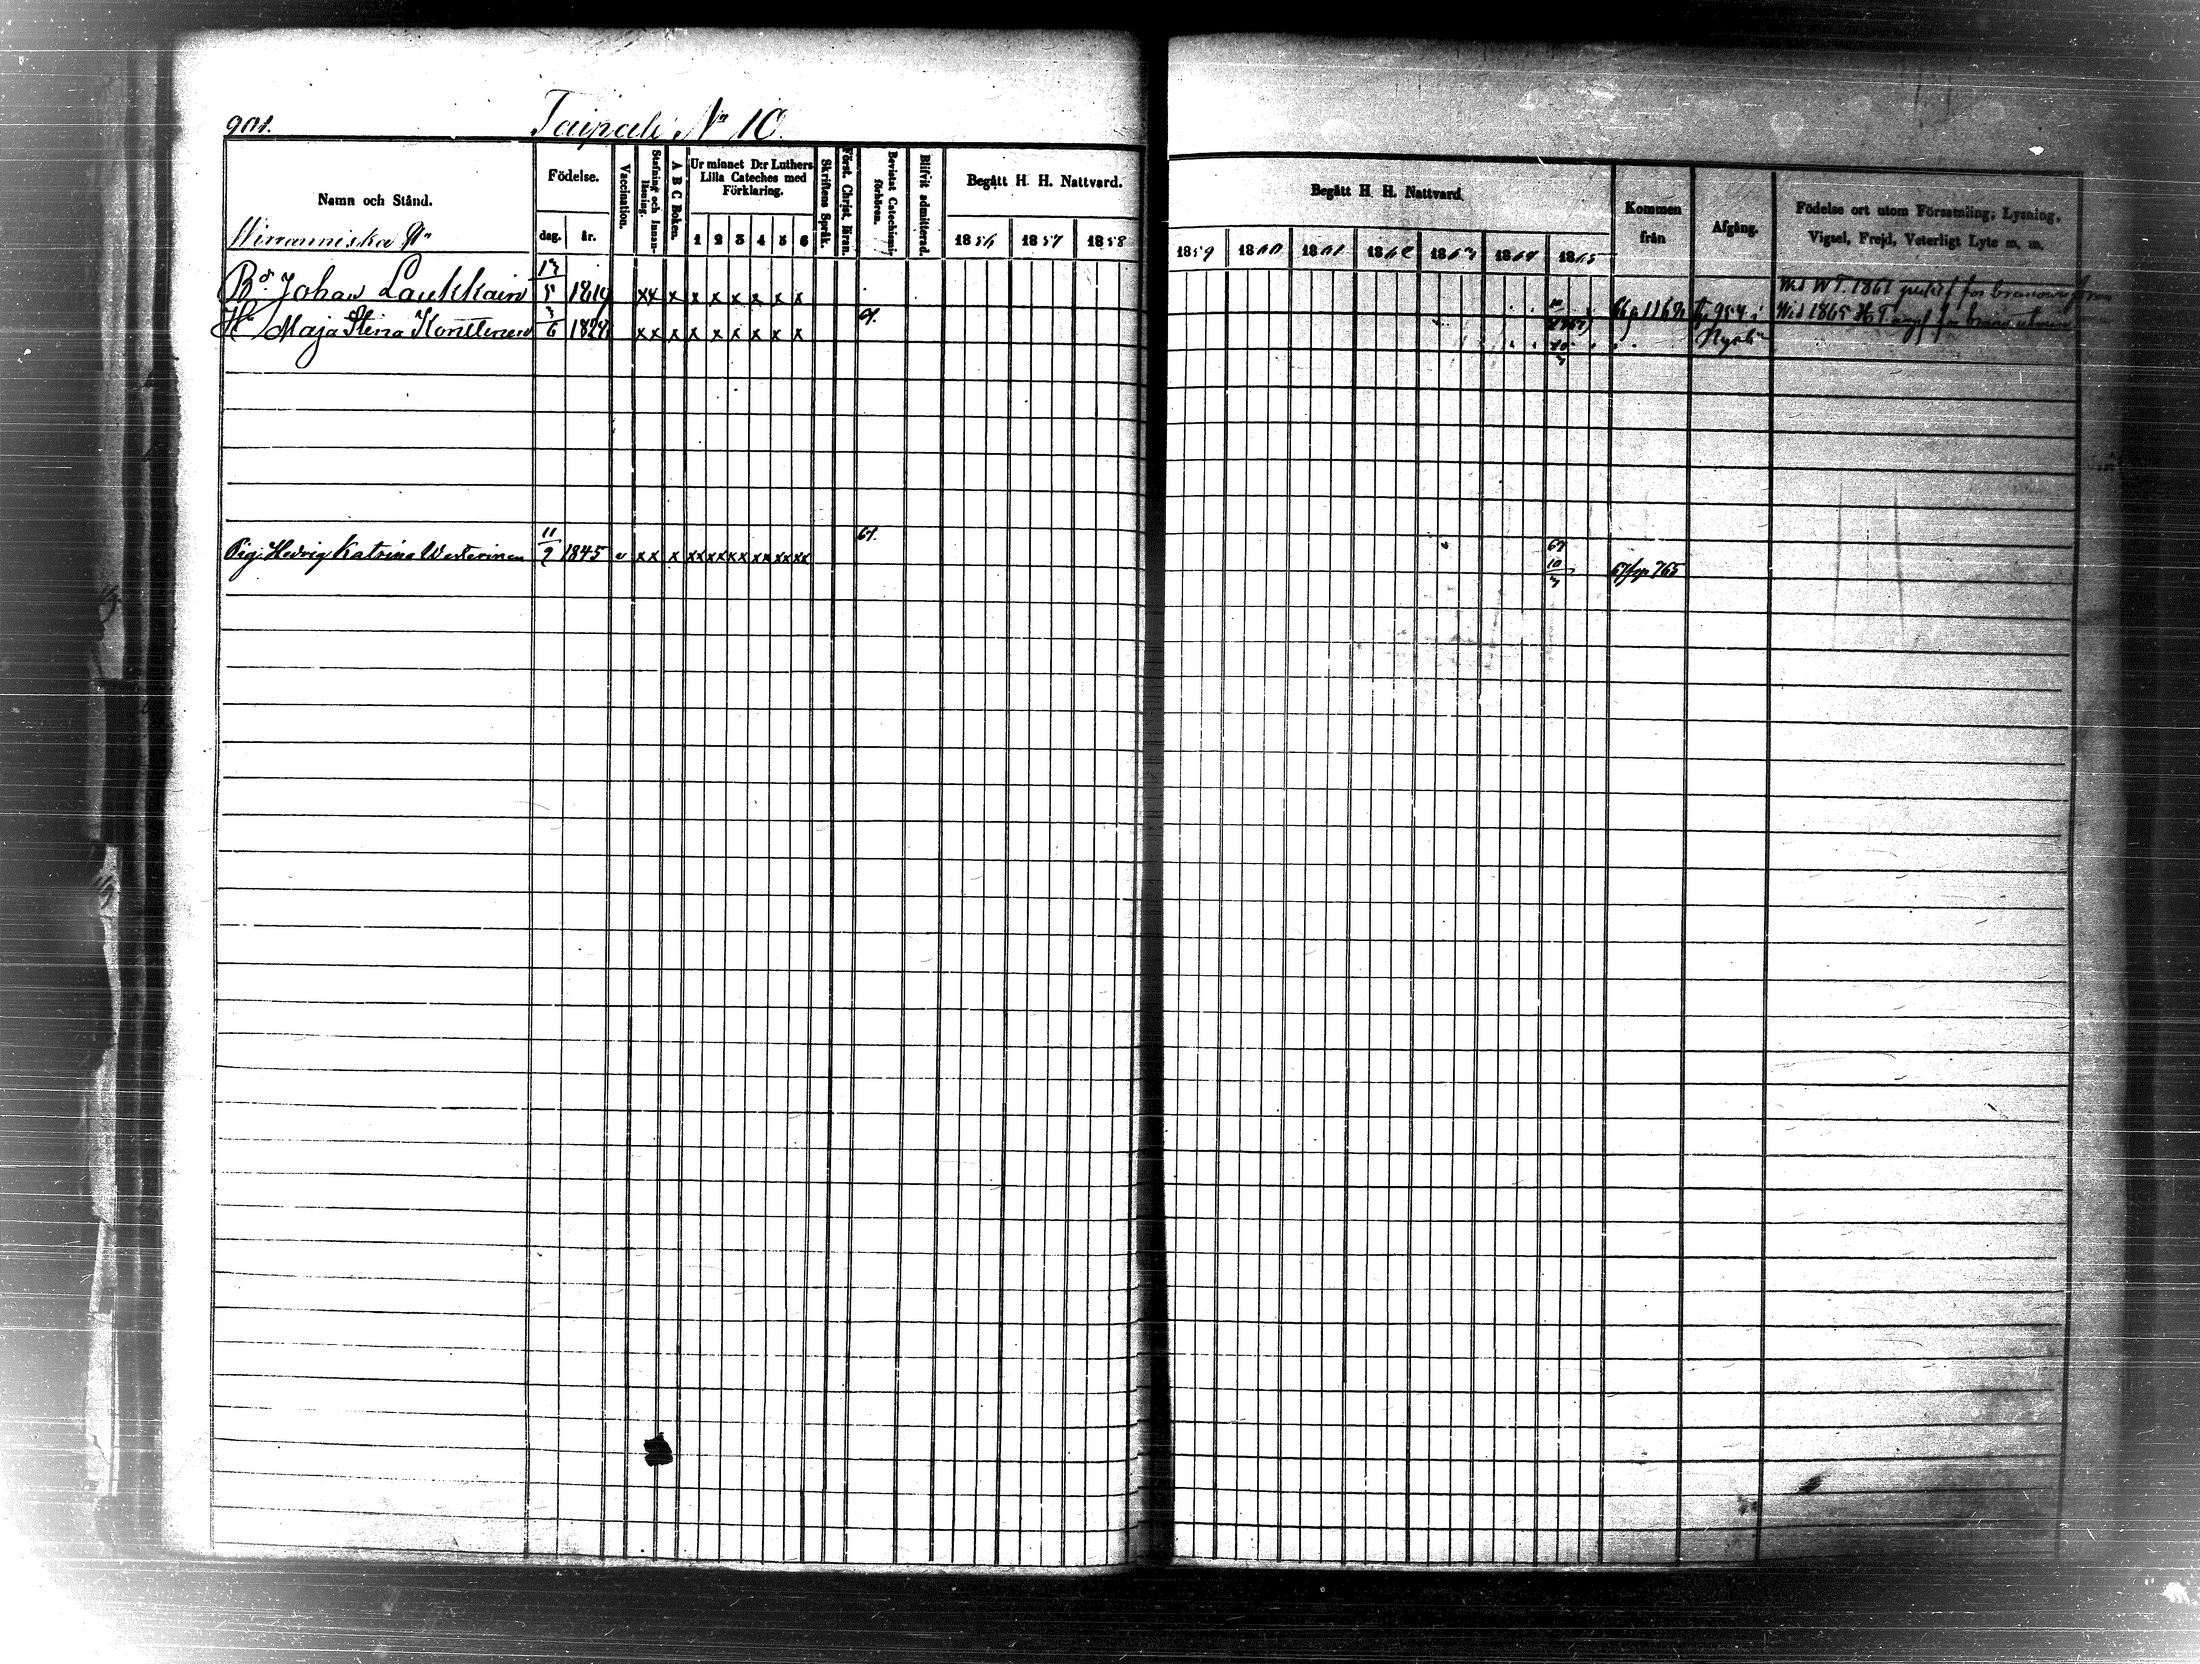 901.
Taipale No 10.
Namn och Stånd.
Födelse.
dag. år.
Vaccination.
Stafning och Innanläsning.
A B C Boken.
Ur minnet D:r Luthers Lilla Cateches med Förklaring.
1 2 3 4 5 6
Skriftens Språk.
Först. Christ. läran.
Bevistat Catechismi-förhören.
Blifvit admitterad.
Begått H. H. Nattvard.
1856 1857 1858
Begått H. H. Nattvard.
1859 1860 1861 1862 1863 1864 1865
Kommen från
Afgång.
Födelse ort utom Församling, Lysning, Vigsel, Frejd, Veterligt Lyte m. m.
Johan Laukkain 1819 xx x x x x x x x
Wid WT. 1861
Maja Stina 3/6 x x x x x x x x x 67.
Wid 1865 HT
Pig. Hedvig Katrina Westerinen 11/9 1845 v x x x xx xx xx xx xx xx 67. 67 10/3 765